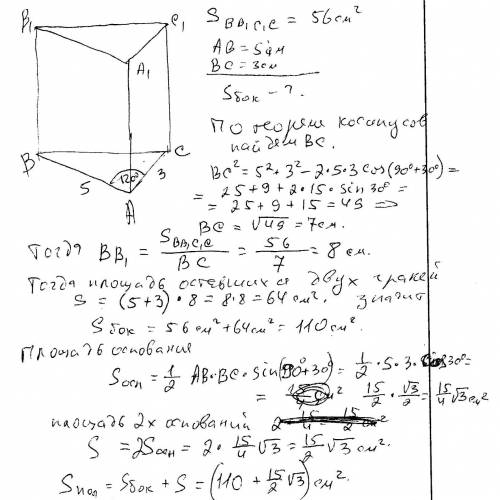 B₁ C₁ A₁ B C A 5 120° 3
S BB₁C₁C = 56 см²
AB = 5 см
BC = 3 см
Sбок - ?
По теореме косинусов
найдем BC.
BC² = 5² + 3² - 2·5·3 cos(90°+30°) =
= 25 + 9 + 2·15·sin 30° =
= 25 + 9 + 15 = 49 ⇒
BC = √49 = 7 см.
Тогда BB₁ = S BB₁C₁C / BC = 56/7 = 8 см.
Тогда площадь оставшихся двух граней
S = (5+3)·8 = 8·8 = 64 см². значит
Sбок = 56 см² + 64 см² = 110 см².
Площадь основания
Sосн = 1/2 AB·BC·sin(90°+30) = 1/2·5·3·cos 30° =
= см² 15/2·√3/2 = 15/4 √3 см²
площадь 2х оснований
S = 2Sосн = 2·15/4 √3 = 15/2 √3 см².
Sпол = Sбок + S = (110 + 15/2 √3) см².